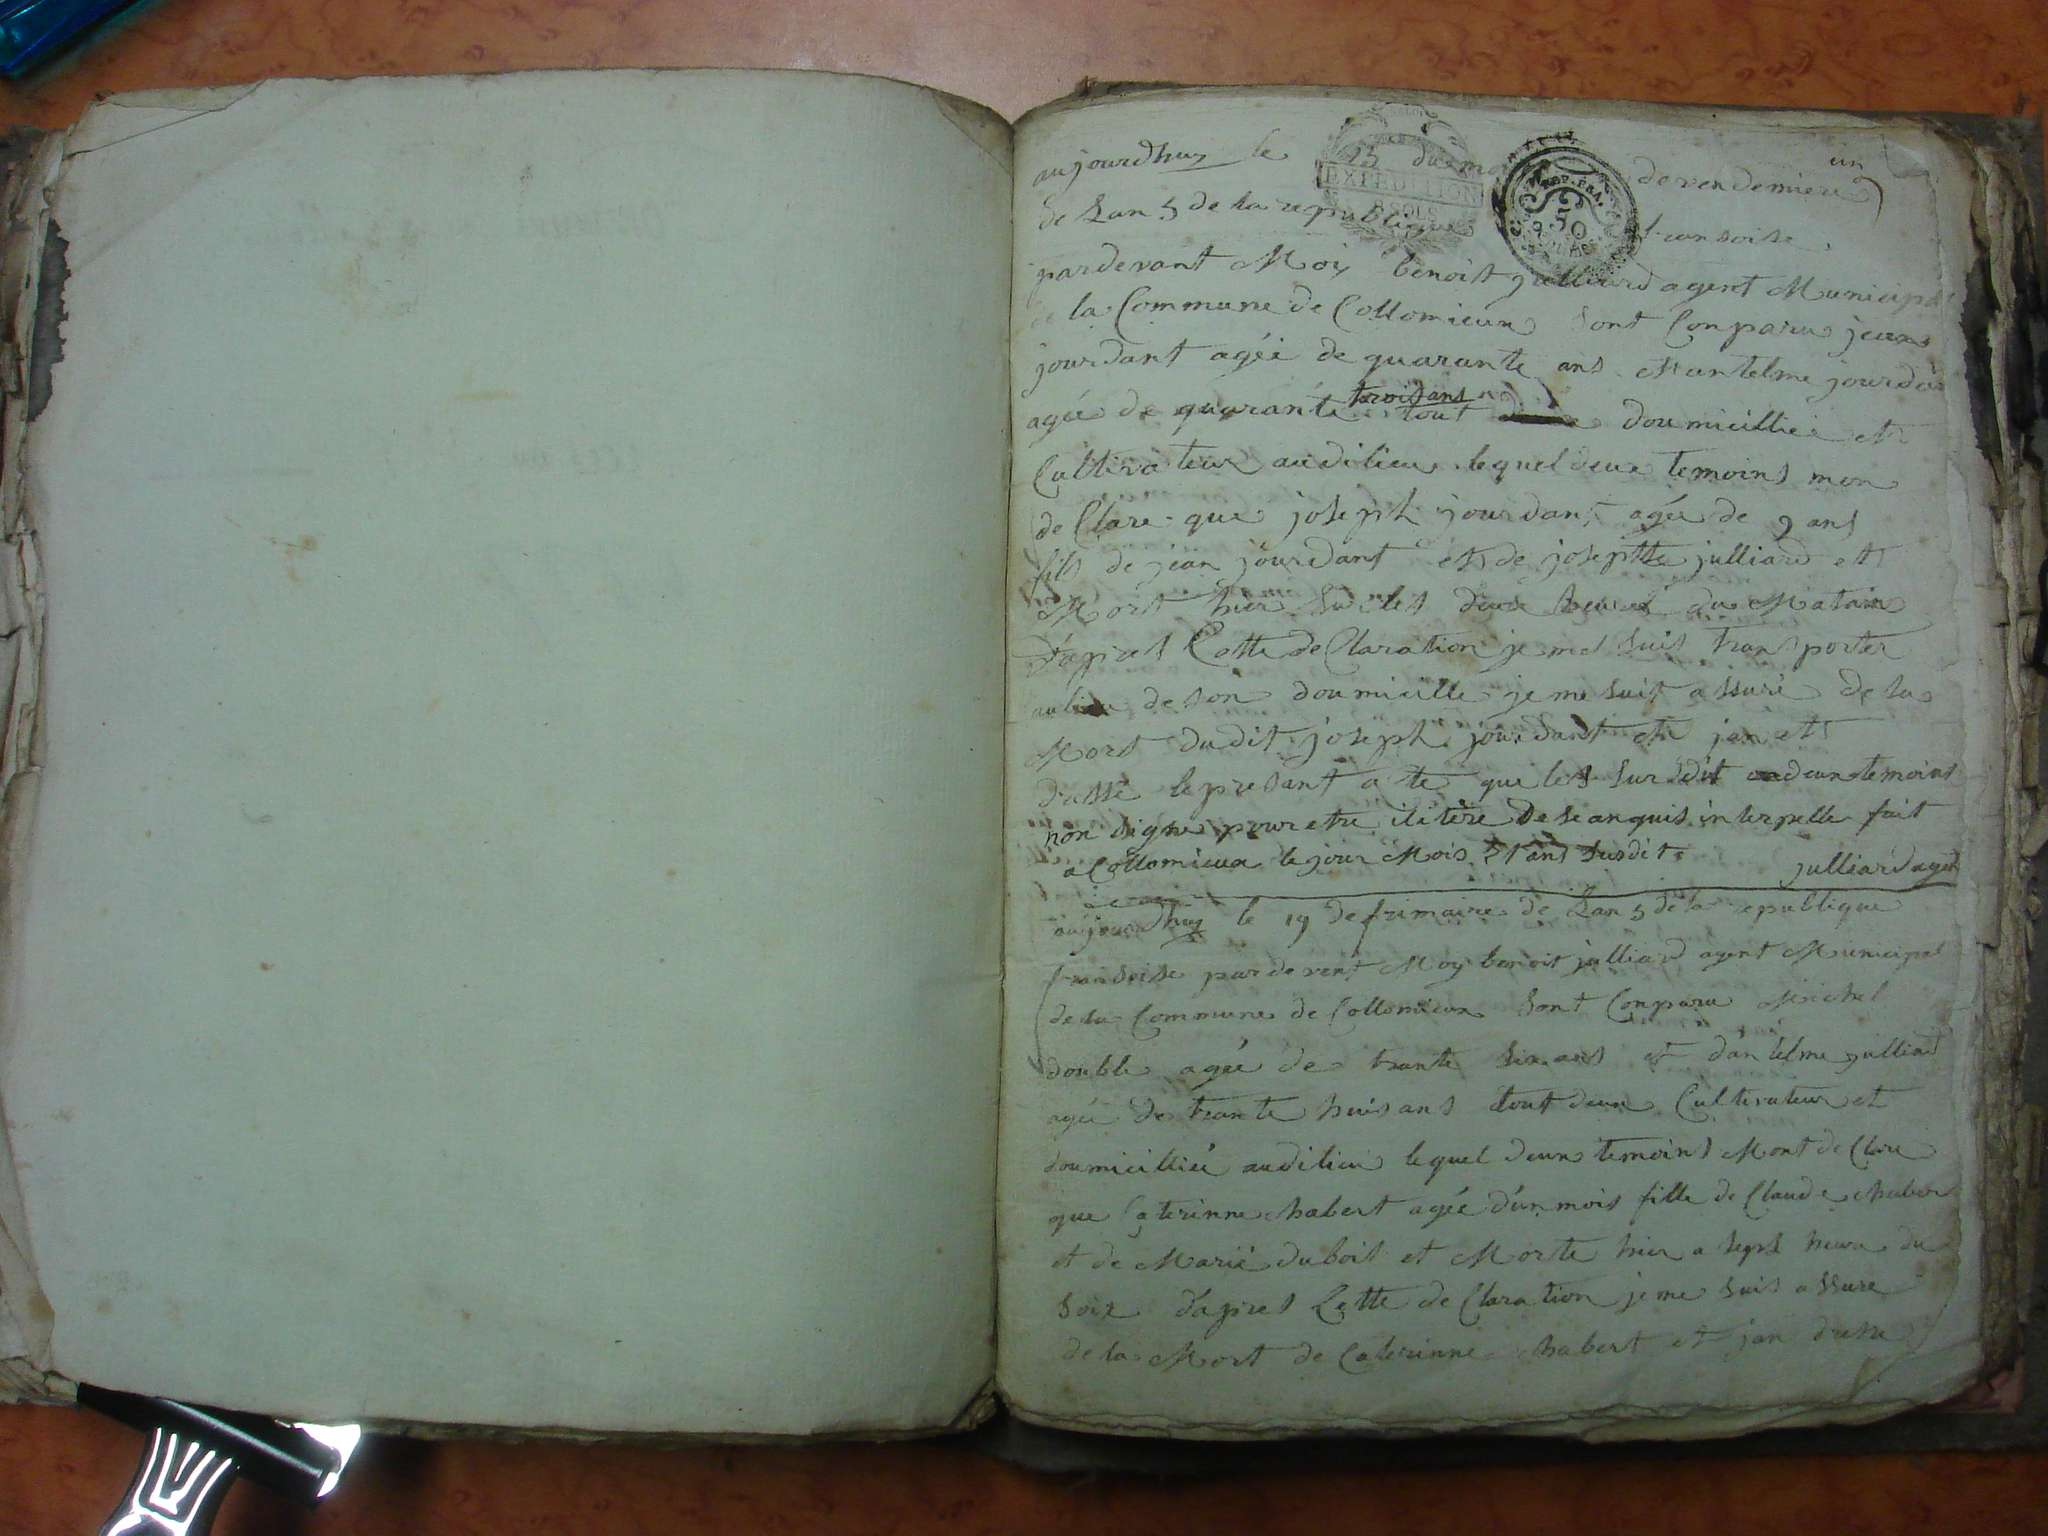 un
aujourdhuy le 23 du mois devendemiere
de Lan 5 de la republique fransoise
pardevant Moy benoist julliard agent Municipal
de la Commune de Collomieux sont Conparu jean
jourdant agée de quarante ans et antelme jourdan
agée de quarante trois ans tout doumicilliée et
Cultivateur audilieu lequel deux temoins mon
de Clare que joseph jourdant agée de 9 ans
fils de jean jourdant et de josephtte julliard et
Mort hier sur les deux heures du Matain
d'apres Cette de Claration je mes suis transporter
au lieu de son doumicille je me suit assuré de la
Mort dudit joseph jourdant et jen et
dressé lepresant acte que les sur dit deux temoins
non signe pour etre ilitére de seanquis interpelle fait
a Collomieux le jour Mois et ans susdit julliard agent
aujourdhuy le 19 de frimaire de Lan 5 de la republique
fransoise pardevent Moy benoit julliard agent Municipal
de la Commune de Collomieux sont Conparu Michel
double agée de trante six ans et dantelme julliard
agée de trante huis ans tout deux Cultivateur et
doumicilliée audilieu lequel deux temoins Mont de Clare
que Caterinne habert agée d'un mois fille de Claude habert
et de Marie dubois et Morte hier a sept heure du
soir d'apres Cette de Claration je me suis assure
de la Mort de Caterinne habert et jen dresse
EXPEDITION
8 SOLS
REP. FRA.
50